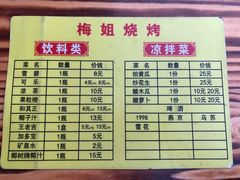 梅姐烧烤
饮料类 凉拌菜
菜名 数量 价钱 菜名 数量 价钱
雪碧 1瓶 8元 拍黄瓜 1份 25元
可乐 1瓶 炒花生 1份 25元
凉茶 1瓶 10元 酸木瓜 1份 20元
果粒橙 1瓶 10元 酸萝卜 1份 20元
和其正 1瓶 啤酒
椰子汁 1瓶 13元 1998 燕京 乌苏
王老吉 1瓶 雪花
加多宝 1瓶
矿泉水 1瓶 2元
椰树牌椰汁 1瓶 15元